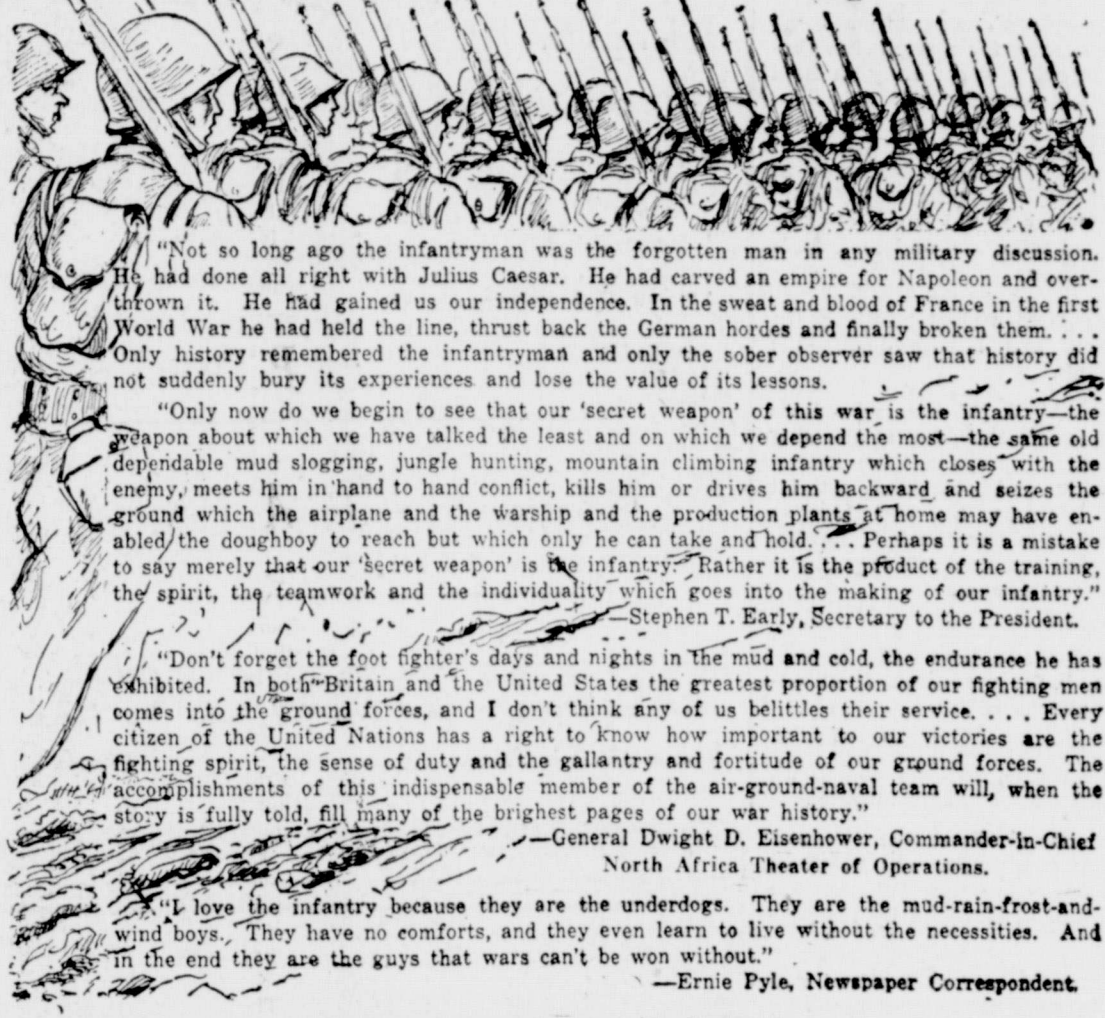 "Not so long ago the infantryman was the forgotten man in any military discussion.
He had done all right with Julius Caesar. He had carved an empire for Napoleon and over-
thrown it. He had gained us our independence. In the sweat and blood of France in the first
World War he had held the line, thrust back the German hordes and finally broken them. . . .
Only history remembered the infantryman and only the sober observer saw that history did
not suddenly bury its experiences and lose the value of its lessons.
"Only now do we begin to see that our 'secret weapon' of this war is the infantry—the
weapon about which we have talked the least and on which we depend the most—the same old
dependable mud slogging, jungle hunting, mountain climbing infantry which closes with the
enemy, meets him in hand to hand conflict, kills him or drives him backward and seizes the
ground which the airplane and the warship and the production plants at home may have en-
abled the doughboy to reach but which only he can take and hold. . . . Perhaps it is a mistake
to say merely that our 'secret weapon' is the infantry. Rather it is the product of the training,
the spirit, the teamwork and the individuality which goes into the making of our infantry."
—Stephen T. Early, Secretary to the President.
"Don't forget the foot fighter's days and nights in the mud and cold, the endurance he has
exhibited. In both Britain and the United States the greatest proportion of our fighting men
comes into the ground forces, and I don't think any of us belittles their service. . . . Every
citizen of the United Nations has a right to know how important to our victories are the
fighting spirit, the sense of duty and the gallantry and fortitude of our ground forces. The
accomplishments of this indispensable member of the air-ground-naval team will, when the
story is fully told, fill many of the brightest pages of our war history."
—General Dwight D. Eisenhower, Commander-in-Chief
North Africa Theater of Operations.
"I love the infantry because they are the underdogs. They are the mud-rain-frost-and-
wind boys. They have no comforts, and they even learn to live without the necessities. And
in the end they are the guys that wars can't be won without."
—Ernie Pyle, Newspaper Correspondent.